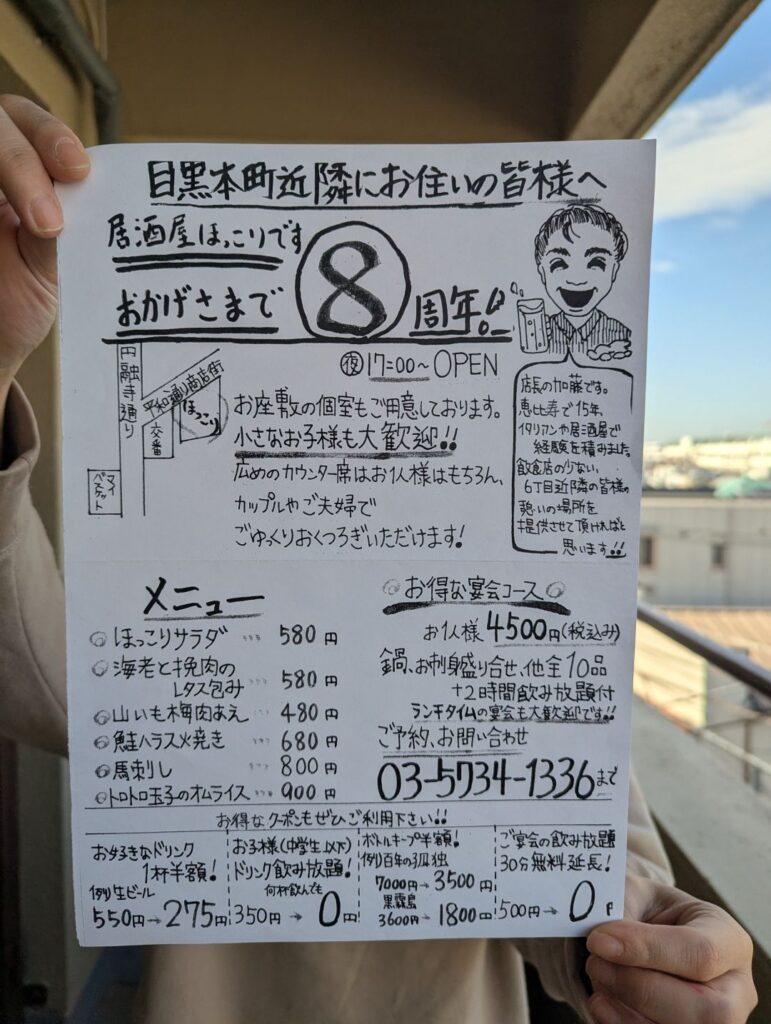 目黒本町近隣にお住いの皆様へ
居酒屋ほっこりです
おかげさまで 8 周年!!
夜 17:00〜OPEN
円融寺通り
平和通り商店街
ほっこり
交番
マイバスケット
お座敷の個室もご用意しております。
小さなお子様も大歓迎!!
広めのカウンター席はお1人様はもちろん、
カップルやご夫婦で
ごゆっくりおくつろぎいただけます!
店長の加藤です。
恵比寿で15年、
イタリアンや居酒屋で
経験を積みました。
飲食店の少ない、
6丁目近隣の皆様の
憩いの場所を
提供させて頂ければと
思います!!
メニュー
ほっこりサラダ … 580円
海老と挽肉の
レタス包み … 580円
山いも梅肉あえ … 480円
鮭ハラス火焼き … 680円
馬刺し … 800円
トロトロ玉子のオムライス … 900円
お得な宴会コース
お1人様 4500円(税込み)
鍋、お刺身盛り合せ、他全10品
+2時間飲み放題付
ランチタイムの宴会も大歓迎です!!
ご予約、お問い合わせ
03-5734-1336まで
お得なクーポンもぜひご利用下さい!!
お好きなドリンク
1杯半額!
例)生ビール
550円→275円
お子様(中学生以下)
ドリンク飲み放題!
何杯飲んでも
350円→0円
ボトルキープ半額!
例)百年の孤独
7000円→3500円
黒霧島
3600円→1800円
ご宴会の飲み放題
30分無料延長!
500円→0円